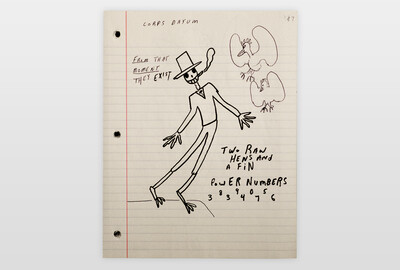 CORPS DATUM
'87
FROM THAT
MOMENT
THEY EXIST
TWO RAW
HENS AND
A FIN
POWER NUMBERS
8 9 0 5
3 3 4 7 6